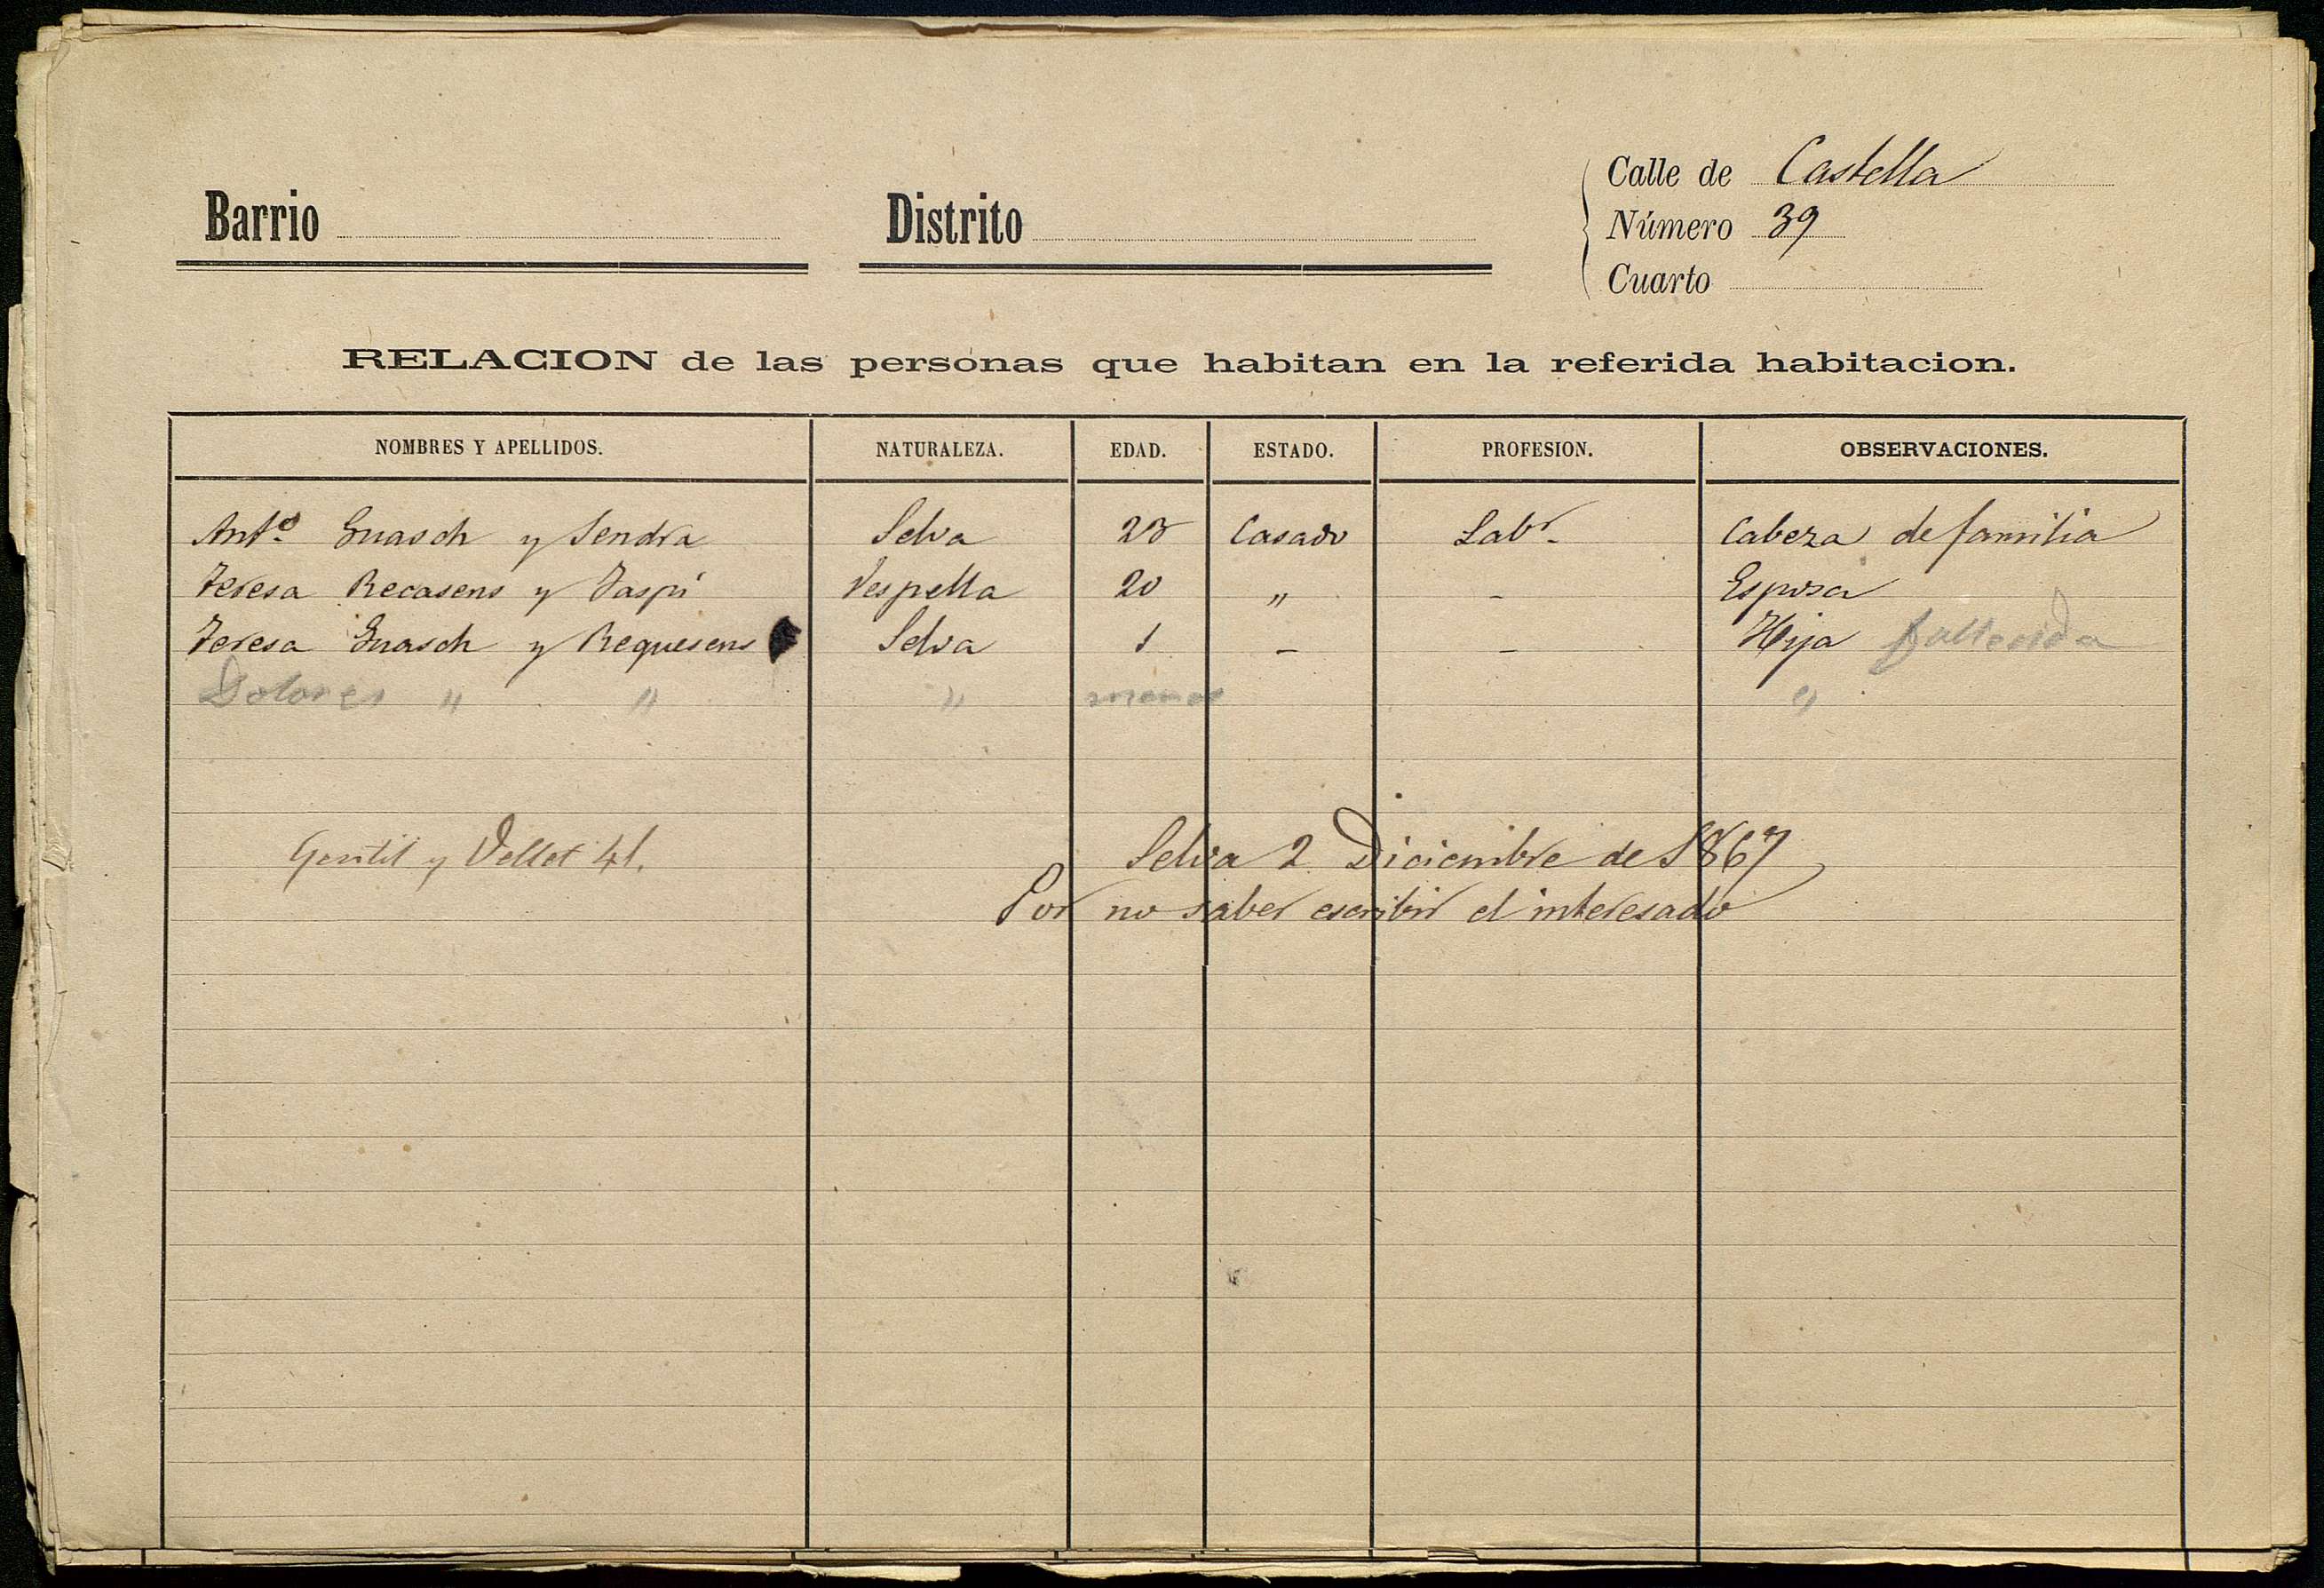 Barrio
Distrito
Calle de Castella
Número 39
Cuarto
RELACION de las personas que habitan en la referida habitacion.
NOMBRES Y APELLIDOS. NATURALEZA. EDAD. ESTADO. PROFESION. OBSERVACIONES.
Antº Guasch y Sendra Selva 23 Casado Labr. Cabeza de familia
Teresa Recasens y Vespella 20 " - Esposa
Teresa Guasch y Requesens Selva 1 - - Hija fallecida
Dolores " " " menor "
Gentil y Vellet 41.
Selva 2 Diciembre de 1867
Por no saber escribir el interesado